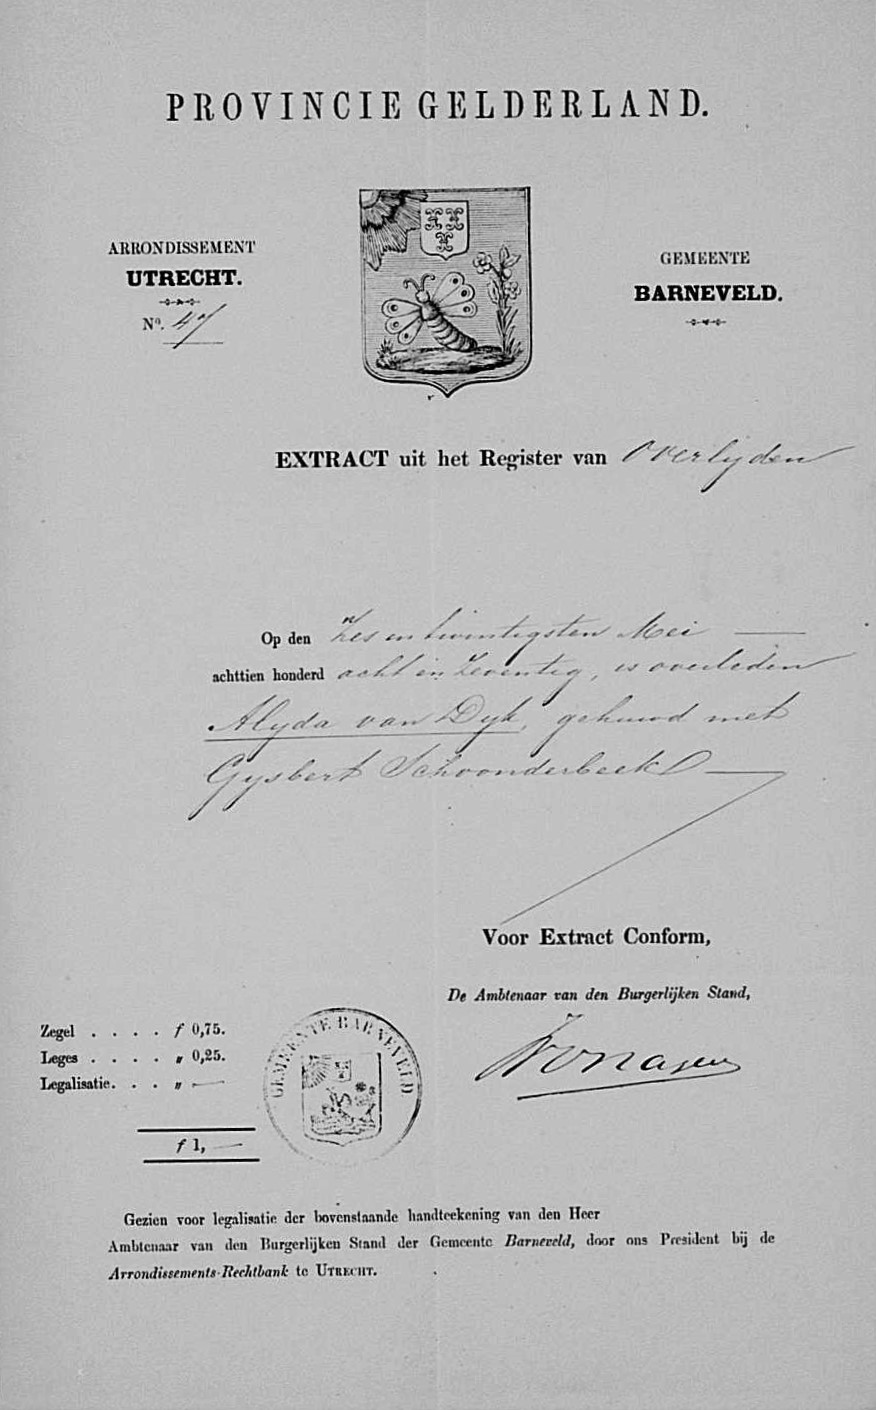 PROVINCIE GELDERLAND.
ARRONDISSEMENT
UTRECHT.
No. 47
GEMEENTE
BARNEVELD.
EXTRACT uit het Register van Overlijden
Op den Zes en twintigsten Mei
achttien honderd acht en zeventig, is overleden
Alyda van Dyk, gehuwd met
Gysbert Schoonderbeek
Voor Extract Conform,
De Ambtenaar van den Burgerlijken Stand,
Zegel . . . . f 0,75.
Leges . . . . „ 0,25.
Legalisatie. . . „ —
f 1, —
GEMEENTE BARNEVELD
Gezien voor legalisatie der bovenstaande handteekening van den Heer
Ambtenaar van den Burgerlijken Stand der Gemeente Barneveld, door ons President bij de
Arrondissements-Rechtbank te UTRECHT.